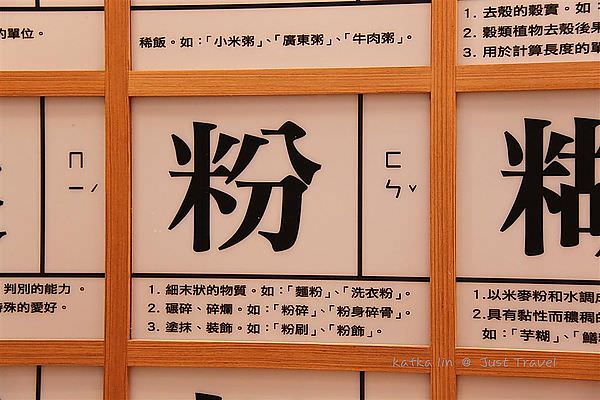 的單位。
稀飯。如:「小米粥」、「廣東粥」、「牛肉粥」。
1. 去殼的穀實。如:
2. 穀類植物去殼後果
3. 用於計算長度的單
ㄇㄧˊ
粉
ㄈㄣˇ
糊
判別的能力。
特殊的愛好。
1. 細末狀的物質。如:「麵粉」、「洗衣粉」。
2. 碾碎、碎爛。如:「粉碎」、「粉身碎骨」。
3. 塗抹、裝飾。如:「粉刷」、「粉飾」。
1.以米麥粉和水調成
2.具有黏性而穠稠的
如:「芋糊」、「鱔
katka lin @ Just Travel